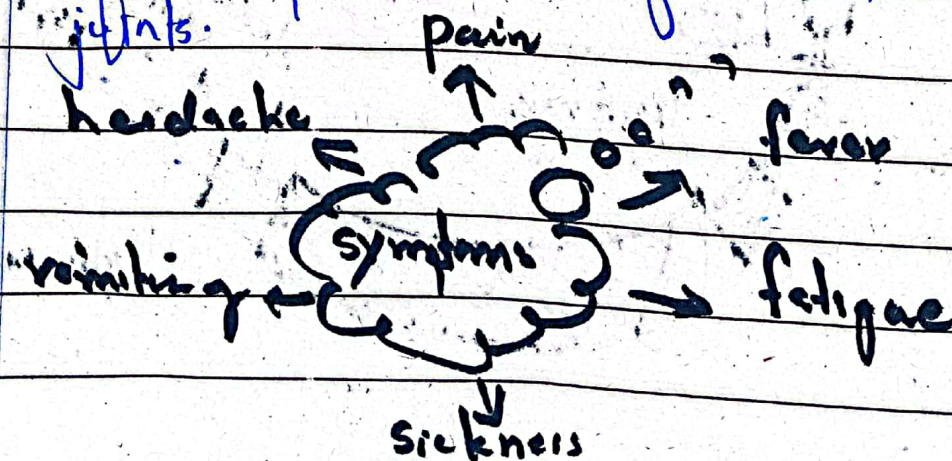 joints.
pain
headache
fever
symptoms
vomiting
fatigue
sickness